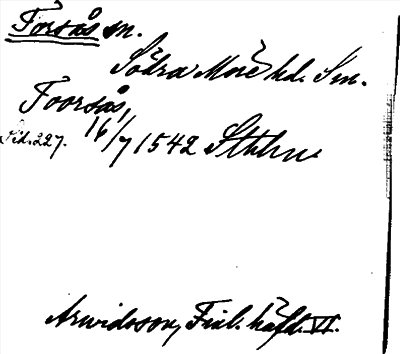 Torsås sn.
Södra Möre hd. Sm.
Toorsås,
Sid. 227. 16/7 1542 Sthlm
Arwidsson, Finl. häfd. VI.